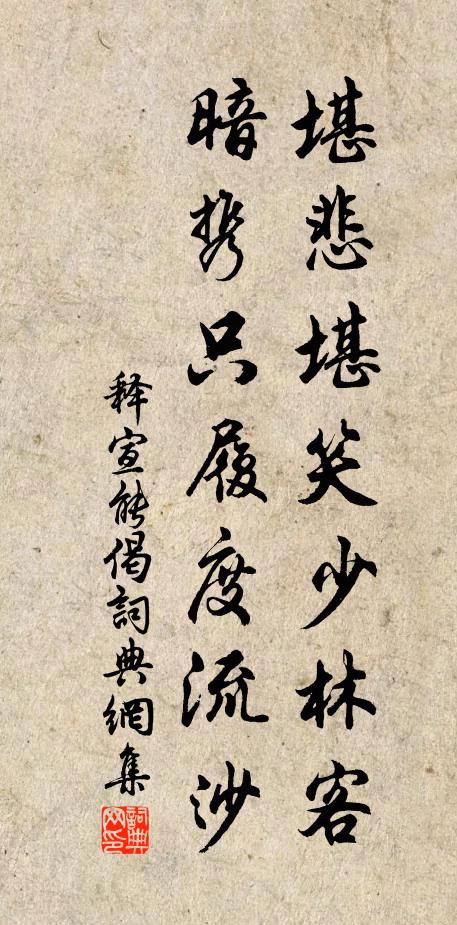 堪悲堪笑少林客
暗携只履度流沙
释宣能偈詞典網集
詞典
网印